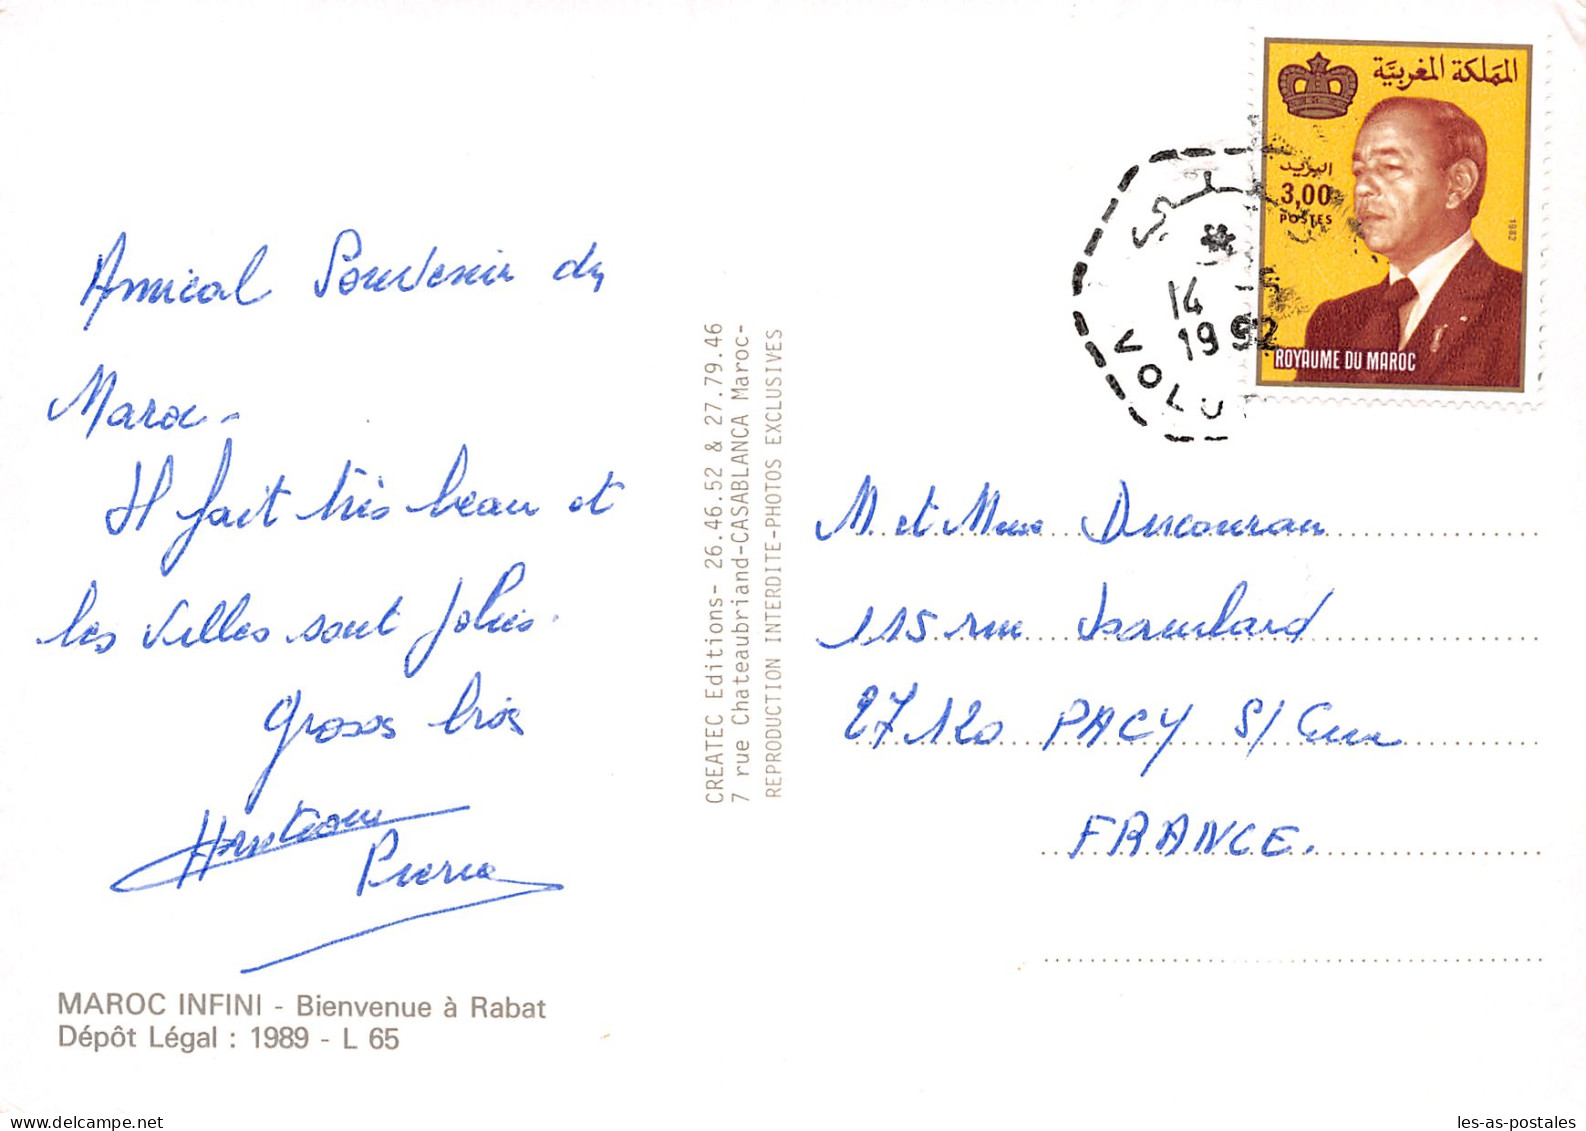 Amical Souvenir du
Maroc -
Il fait très beau et
les villes sont jolies.
Grosses bises
Pierre
MAROC INFINI - Bienvenue à Rabat
Dépôt Légal : 1989 - L 65
CREATEC Editions- 26.46.52 & 27.79.46
7 rue Chateaubriand-CASABLANCA Maroc-
REPRODUCTION INTERDITE-PHOTOS EXCLUSIVES
المملكة المغربية
البريد
3,00
POSTES
1982
ROYAUME DU MAROC
14
1992
VOLU
M. et Mme Ducouran
115 rue Isambard
27120 PACY S/ Eure
FRANCE.
les-as-postales